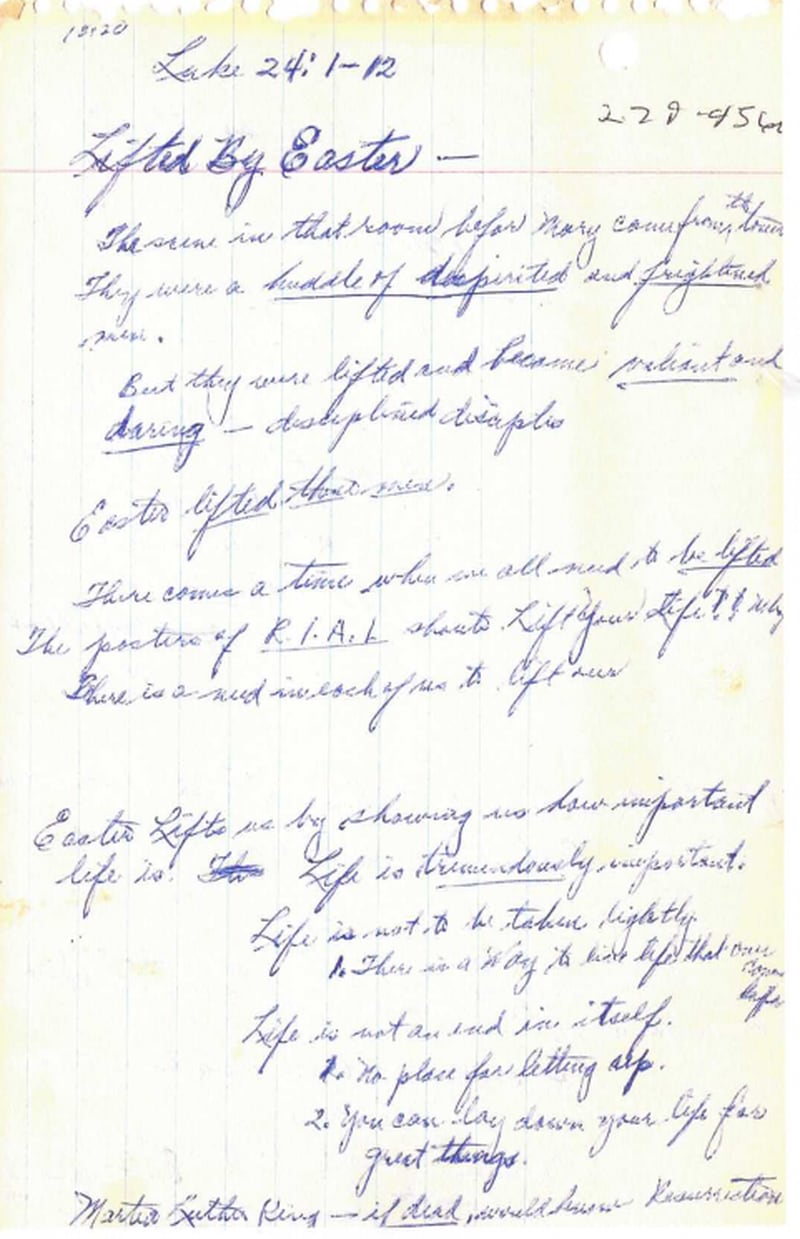 Luke 24:1-12
Lifted By Easter —
The scene in that room before Mary comes from the
They were a huddle of dispirited and frightened
men.
But they were lifted and become valiant and
daring — disciplined disciples
Easter lifted those men.
There comes a time when we all need to be lifted
The posters of R.I.A.L shouts Lift Your Life!! Why
There is a need in each of us to lift our
Easter Lifts us by showing us how important
life is. Life is tremendously important.
Life is not to be taken lightly.
1. There is a Way to live life that
Life is not an end in itself.
1. No place for letting up.
2. You can lay down your life for
great things.
Martin Luther King — if dead, would know Resurrection